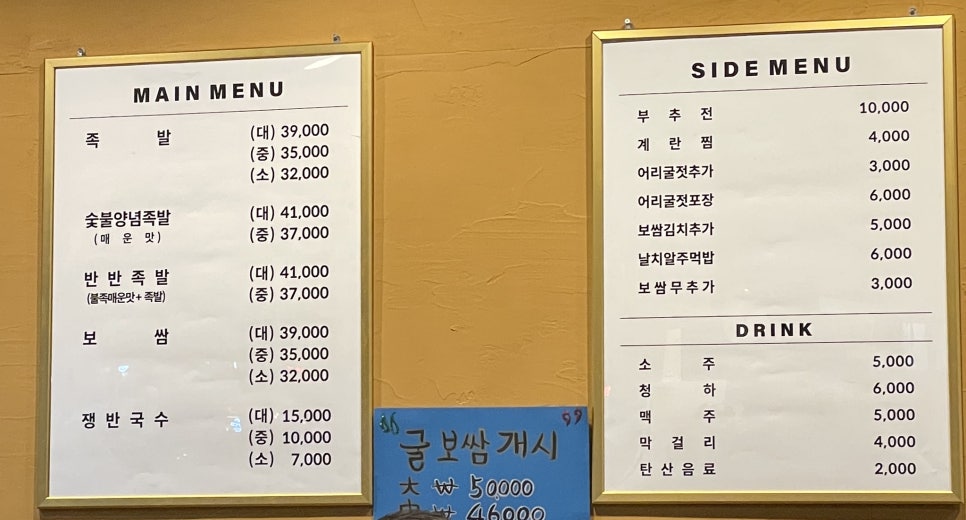 MAIN MENU
족 발 (대) 39,000
(중) 35,000
(소) 32,000
숯불양념족발 (대) 41,000
(매 운 맛) (중) 37,000
반 반 족 발 (대) 41,000
(불족매운맛 + 족발) (중) 37,000
보 쌈 (대) 39,000
(중) 35,000
(소) 32,000
쟁 반 국 수 (대) 15,000
(중) 10,000
(소) 7,000
굴보쌈 개시
大 ₩ 50,000
中 ₩ 46,000
SIDE MENU
부 추 전 10,000
계 란 찜 4,000
어리굴젓추가 3,000
어리굴젓포장 6,000
보쌈김치추가 5,000
날치알주먹밥 6,000
보쌈무추가 3,000
DRINK
소 주 5,000
청 하 6,000
맥 주 5,000
막 걸 리 4,000
탄 산 음 료 2,000